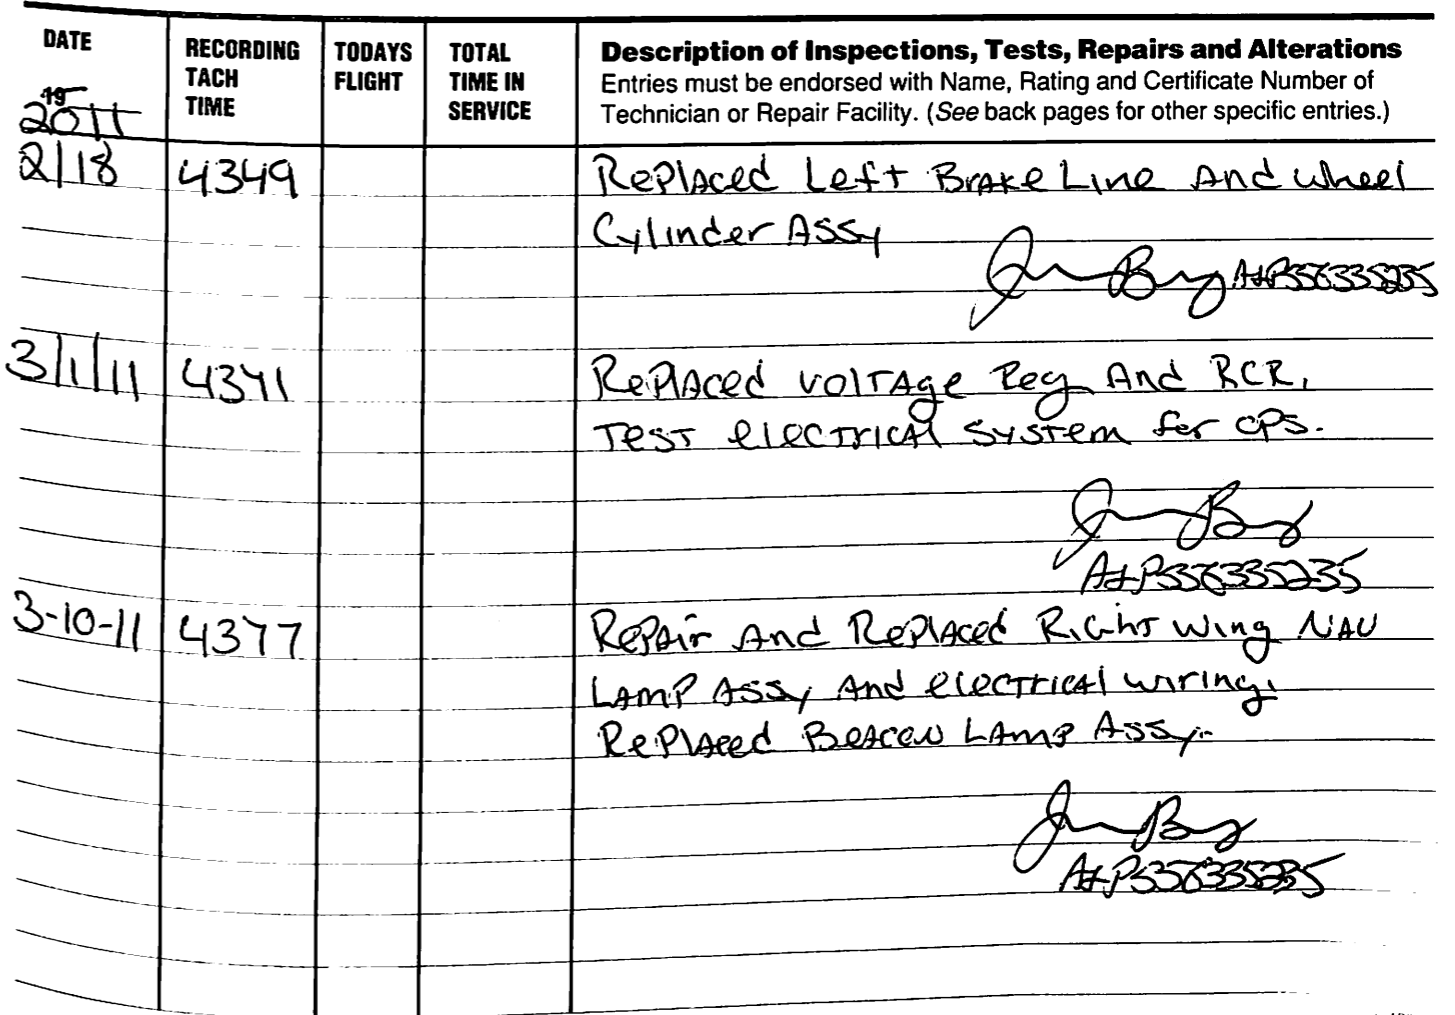 DATE
19
2011
RECORDING
TACH
TIME
TODAYS
FLIGHT
TOTAL
TIME IN
SERVICE
Description of Inspections, Tests, Repairs and Alterations
Entries must be endorsed with Name, Rating and Certificate Number of
Technician or Repair Facility. (See back pages for other specific entries.)
2/18 4349 Replaced Left Brake Line And wheel
Cylinder Assy
A&P556335235
3/1/11 4341 Replaced voltage Reg And RCR,
Test electrical system for ops.
A&P556335235
3-10-11 4377 Repair And Replaced Right wing NAV
Lamp Assy And electrical wiring,
Replaced Beacon Lamp Assy.
A&P556335235